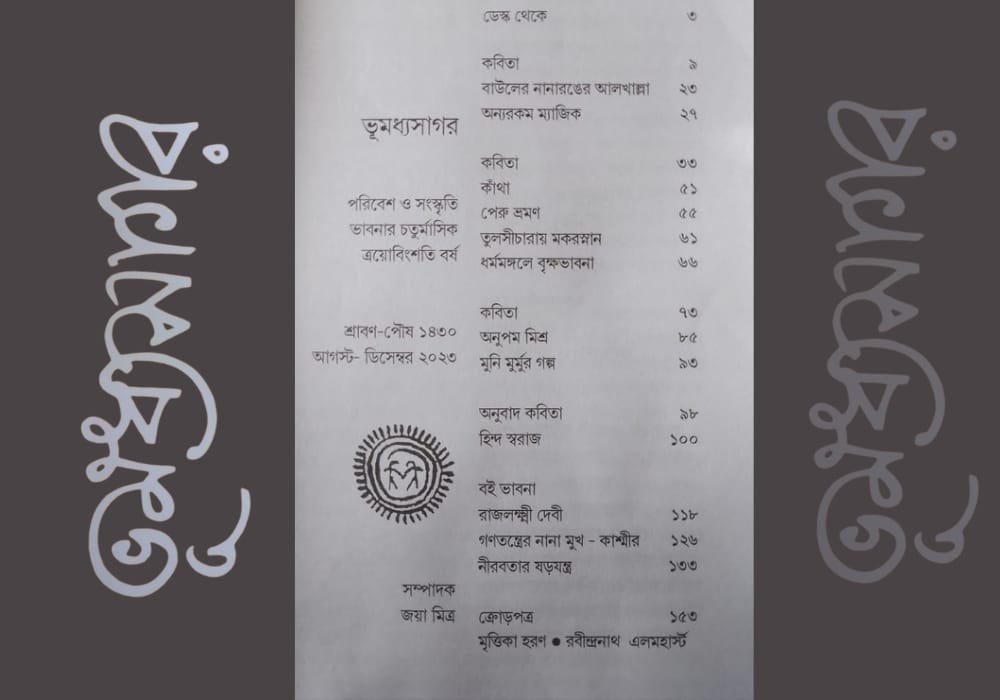 ভূমধ্যসাগর
ভূমধ্যসাগর
পরিবেশ ও সংস্কৃতি
ভাবনার চতুর্মাসিক
ত্রয়োবিংশতি বর্ষ
শ্রাবণ-পৌষ ১৪৩০
আগস্ট- ডিসেম্বর ২০২৩
সম্পাদক
জয়া মিত্র
ডেস্ক থেকে ৩
কবিতা ৯
বাউলের নানারঙের আলখাল্লা ২৩
অন্যরকম ম্যাজিক ২৭
কবিতা ৩৩
কাঁথা ৫১
পেরু ভ্রমণ ৫৫
তুলসীচারায় মকরস্নান ৬১
ধর্মমঙ্গলে বৃক্ষভাবনা ৬৬
কবিতা ৭৩
অনুপম মিশ্র ৮৫
মুনি মুর্মুর গল্প ৯৩
অনুবাদ কবিতা ৯৮
হিন্দ স্বরাজ ১০০
বই ভাবনা
রাজলক্ষ্মী দেবী ১১৮
গণতন্ত্রের নানা মুখ - কাশ্মীর ১২৬
নীরবতার ষড়যন্ত্র ১৩৩
ক্রোড়পত্র ১৫৩
মৃত্তিকা হরণ ● রবীন্দ্রনাথ এলমহার্স্ট
ভূমধ্যসাগর